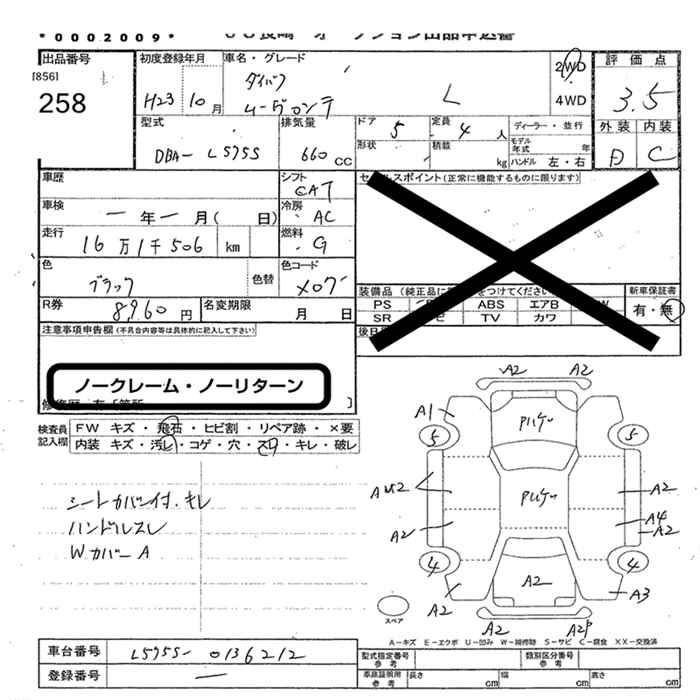 *0002009*
出品番号
[856]
258
初度登録年月
H23 10月
車名・グレード
ダイハツ
ムーヴコンテ
L
2WD
4WD
評価点
3.5
外装 内装
D C
型式
DBA-L575S
排気量
660 CC
ドア
5
定員
4 人
形状
積載
kg
ディーラー・並行
モデル年式 年
ハンドル 左・右
車歴
シフト
CAT
車検
一年一月( 日)
冷房
AC
走行
16万1千506 km
燃料
G
色
ブラック
色替
色コード
X07
R券
8,960 円
名変期限
月 日
スポイント(正常に機能するものに限ります)
装備品
PS
ABS
エアB
W
SR
TV
カワ
後日
新車保証書
有・無
注意事項申告欄(不具合内容等は具体的に記入して下さい)
ノークレーム・ノーリターン
検査員
記入欄
FW キズ・飛石・ヒビ割・リペア跡・×要
内装 キズ・汚レ・コゲ・穴・スレ・キレ・破レ
シートカバー付.キレ
ハンドルスレ
WカバーA
A2 A2
A1
5 5
AU2
A2
A2
A4
A2
4 4
A2
A2
A3
A2
スペア
A-キズ E-エクボ U-凹み W-補修跡 S-サビ C-腐食 XX-交換済
車台番号
L575S-0136212
登録番号
—
型式指定番号
参考
類別区分番号
参考
車庫証明用
参考
長さ cm
幅 cm
高さ cm